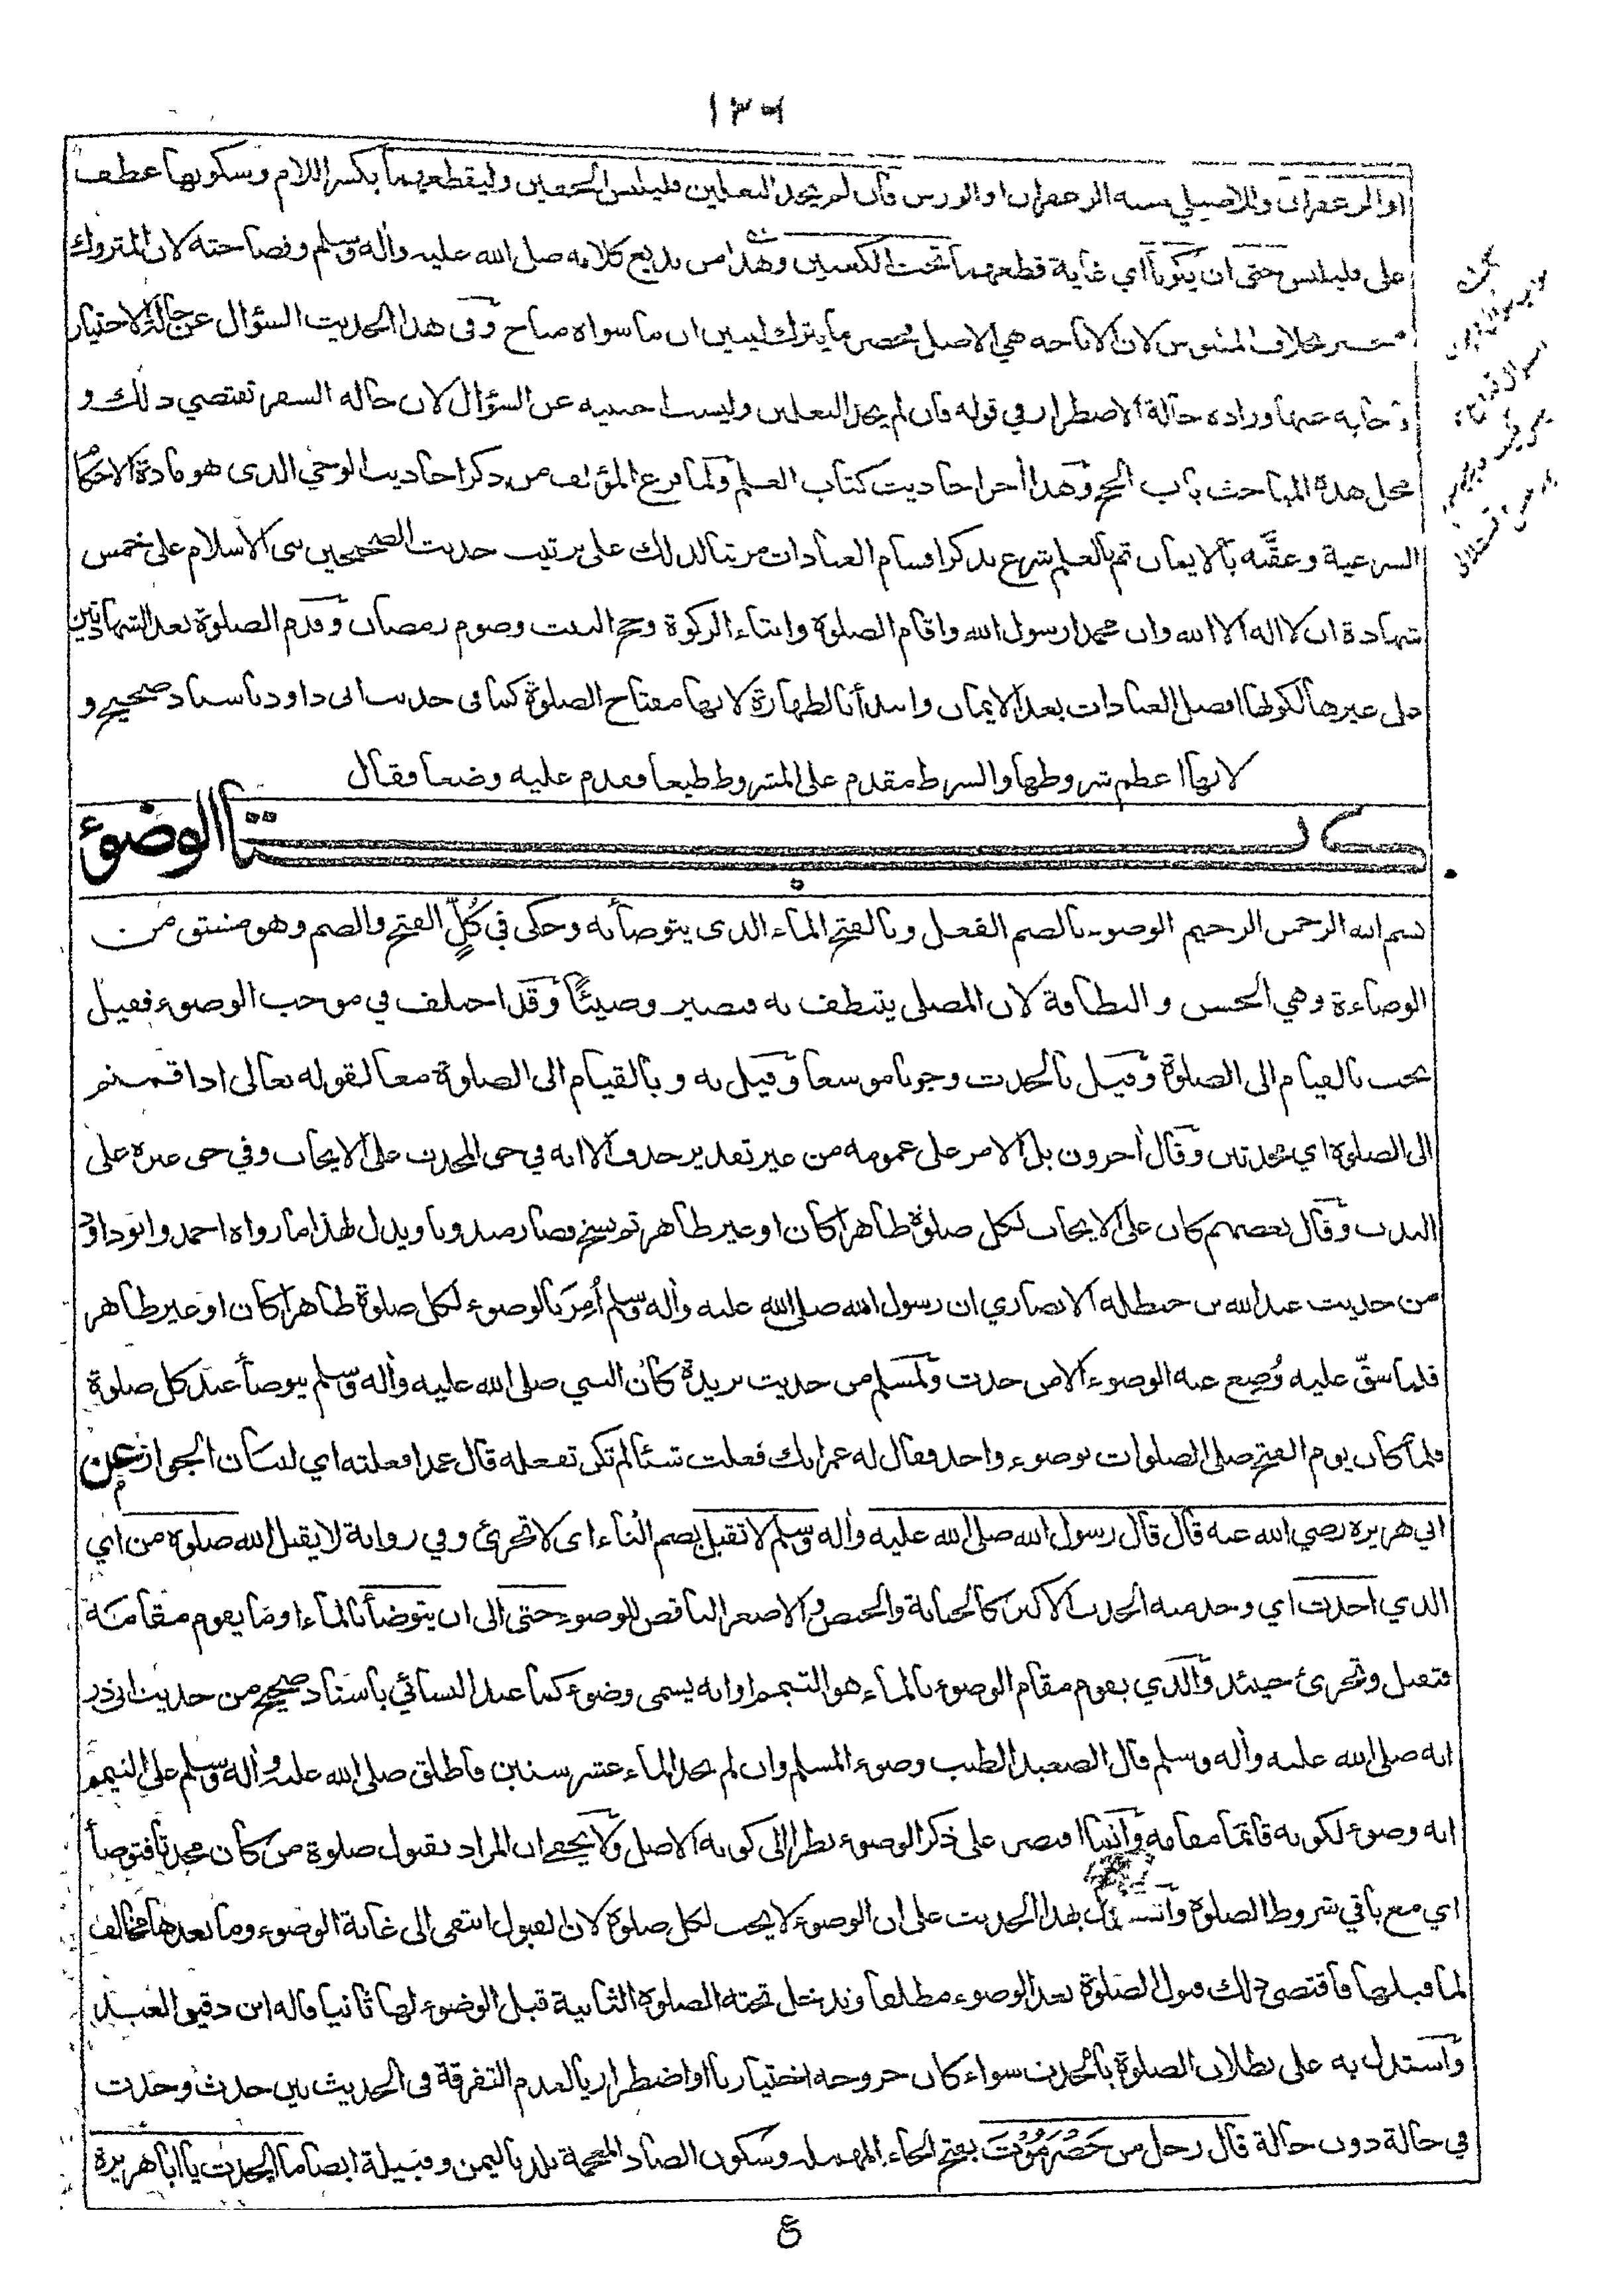 ١٣٩
او الزعفران وللاصيلي مسه الزعفران او الورس فان لم يجد النعلين فليلبس الخفين وليقطعهما بكسر اللام وسكونها عطف
على فليلبس حتى ان يكونا اي غاية قطعهما تحت الكعبين وهذا من بديع كلامه صلى الله عليه وأله وسلم وفصاحته لان المتروك
منحصر بخلاف الملبوس لان الاباحه هي الاصل فحصر ما يترك ليبين ان ما سواه مباح وفى هذا الحديث السؤال عن حالة الاختيار
فاجابه عنها وزاده حالة الاضطرار في قوله فان لم يجد النعلين وليست اجنبيه عن السؤال لان حاله السفر تقتضي ذلك و
محل هذه المباحث باب الحج وهذا أخر احاديث كتاب العلم ولما فرغ المؤلف من ذكر احاديث الوحي الذى هو مادة الاحكام
الشرعية وعقّبه بالايمان ثم بالعلم شرع بذكر اقسام العبادات مرتبا لذلك على ترتيب حديث الصحيحين بنى الاسلام على خمس
شهادة ان لا اله الا الله وان محمدا رسول الله واقام الصلوة وايتاء الزكوة وحج البيت وصوم رمضان وقدم الصلوة بعد الشهادتين
على غيرها لكونها افضل العبادات بعد الايمان وابتدأ بالطهارة لانها مفتاح الصلوة كما فى حديث ابى داود باسناد صحيح و
لانها اعظم شروطها والشرط مقدم على المشروط طبعا فقدم عليه وضعا فقال
كتاب الوضوء
بسم الله الرحمن الرحيم الوضوء بالضم الفعل وبالفتح الماء الذى يتوضأ به وحكى في كُلٍّ الفتح والضم وهو مشتق من
الوضاءة وهي الحسن والنظافة لان المصلى يتنظف به فيصير وضيئًا وقد اختلف في موجب الوضوء فقيل
يجب بالقيام الى الصلوة وقيل بالحدث وجوبا موسعا وقيل به وبالقيام الى الصلوة معا لقوله تعالى اذا قمتم
الى الصلوة اي محدثين وقال أخرون بل الامر على عمومه من غير تقدير حذف الا انه في حق المحدث على الايجاب وفي حق غيره على
الندب وقال بعضهم كان على الايجاب لكل صلوة طاهرا كان او غير طاهر ثم نسخ فصار مندوبا ويدل لهذا ما رواه احمد وابو داود
من حديث عبد الله بن حنظله الانصاري ان رسول الله صلى الله عليه وأله وسلم أُمِرَ بالوضوء لكل صلوة طاهرا كان او غير طاهر
فلما شقّ عليه وُضِع عنه الوضوء الا من حدث ولمسلم من حديث بريدة كان النبي صلى الله عليه وأله وسلم يتوضأ عند كل صلوة
فلما كان يوم الفتح صلى الصلوات بوضوء واحد فقال له عمر انك فعلت شيئا لم تكن تفعله قال عمدا فعلته اي لبيان الجواز عن
ابي هريره رضي الله عنه قال قال رسول الله صلى الله عليه وأله وسلم لا تقبل بضم التاء اى لا تجزئ وفي رواية لا يقبل الله صلوة من اي
الذي احدث اي وجد منه الحدث الاكبر كالجنابة والحيض والاصغر الناقض للوضوء حتى الى ان يتوضأ بالماء او ما يقوم مقامه
فتقبل وتجزئ حينئذ والذي يقوم مقام الوضوء بالماء هو التيمم او انه يسمى وضوء كما عند النسائي باسناد صحيح من حديث ابى ذر
انه صلى الله عليه وأله وسلم قال الصعيد الطيب وضوء المسلم وان لم يجد الماء عشر سنين فاطلق صلى الله عليه وأله وسلم على التيمم
انه وضوء لكونه قائما مقامه وانما اقتصر على ذكر الوضوء نظرا الى كونه الاصل ولا يخفى ان المراد بقبول صلوة من كان محدثا فتوضأ
اي مع باقي شروط الصلوة واستدل بهذا الحديث على ان الوضوء لا يجب لكل صلوة لان القبول انتفى الى غاية الوضوء وما بعدها مخالف
لما قبلها فاقتضى ذلك قبول الصلوة بعد الوضوء مطلقا وتدخل تحته الصلوة الثانية قبل الوضوء لها ثانيا قاله ابن دقيق العيد
واستدل به على بطلان الصلوة بالحدث سواء كان خروجه اختياريا او اضطراريا لعدم التفرقة فى الحديث بين حدث وحدث
في حالة دون حالة قال رجل من حَضْرَمَوْتَ بفتح الحاء المهملة وسكون الضاد المعجمة بلد باليمن وقبيلة ايضا ما الحدث يا ابا هريرة